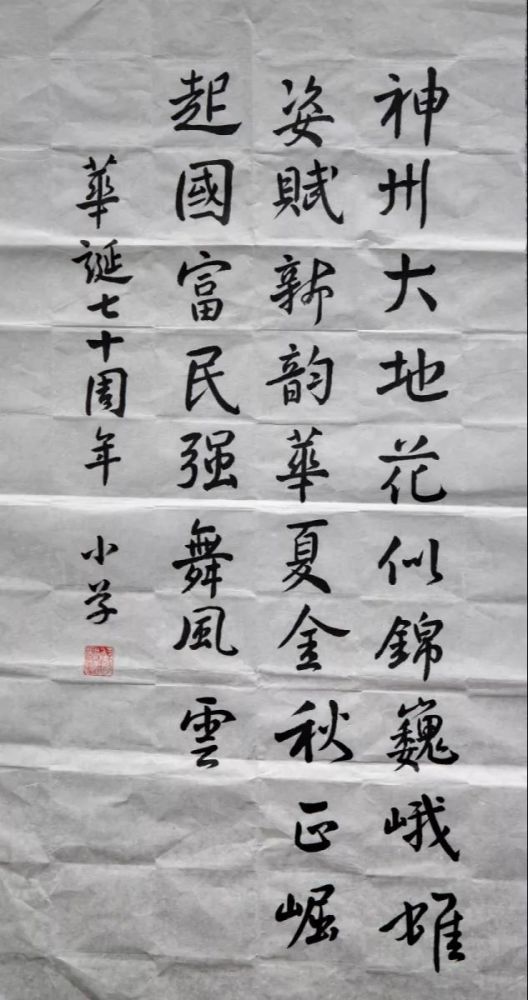 神州大地花似錦巍峨雄
姿賦新韵華夏金秋正崛
起國富民强舞風雲
華誕七十周年 小学